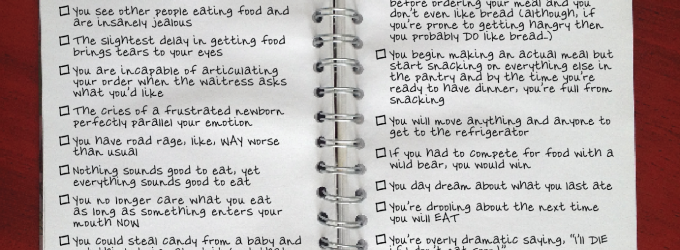 You see other people eating food and
are insanely jealous
The slightest delay in getting food
brings tears to your eyes
You are incapable of articulating
your order when the waitress asks
what you'd like
The cries of a frustrated newborn
perfectly parallel your emotion
You have road rage, like, WAY worse
than usual
Nothing sounds good to eat, yet
everything sounds good to eat
You no longer care what you eat
as long as something enters your
mouth NOW
You could steal candy from a baby and
before ordering your meal and you
don't even like bread (although, if
you're prone to getting hangry then
you probably DO like bread..)
You begin making an actual meal but
start snacking on everything else in
the pantry and by the time you're
ready to have dinner, you're full from
snacking
You will move anything and anyone to
get to the refrigerator
If you had to compete for food with a
wild bear, you would win
You day dream about what you last ate
You're drooling about the next time
you will EAT
You're overly dramatic saying, "I'll DIE